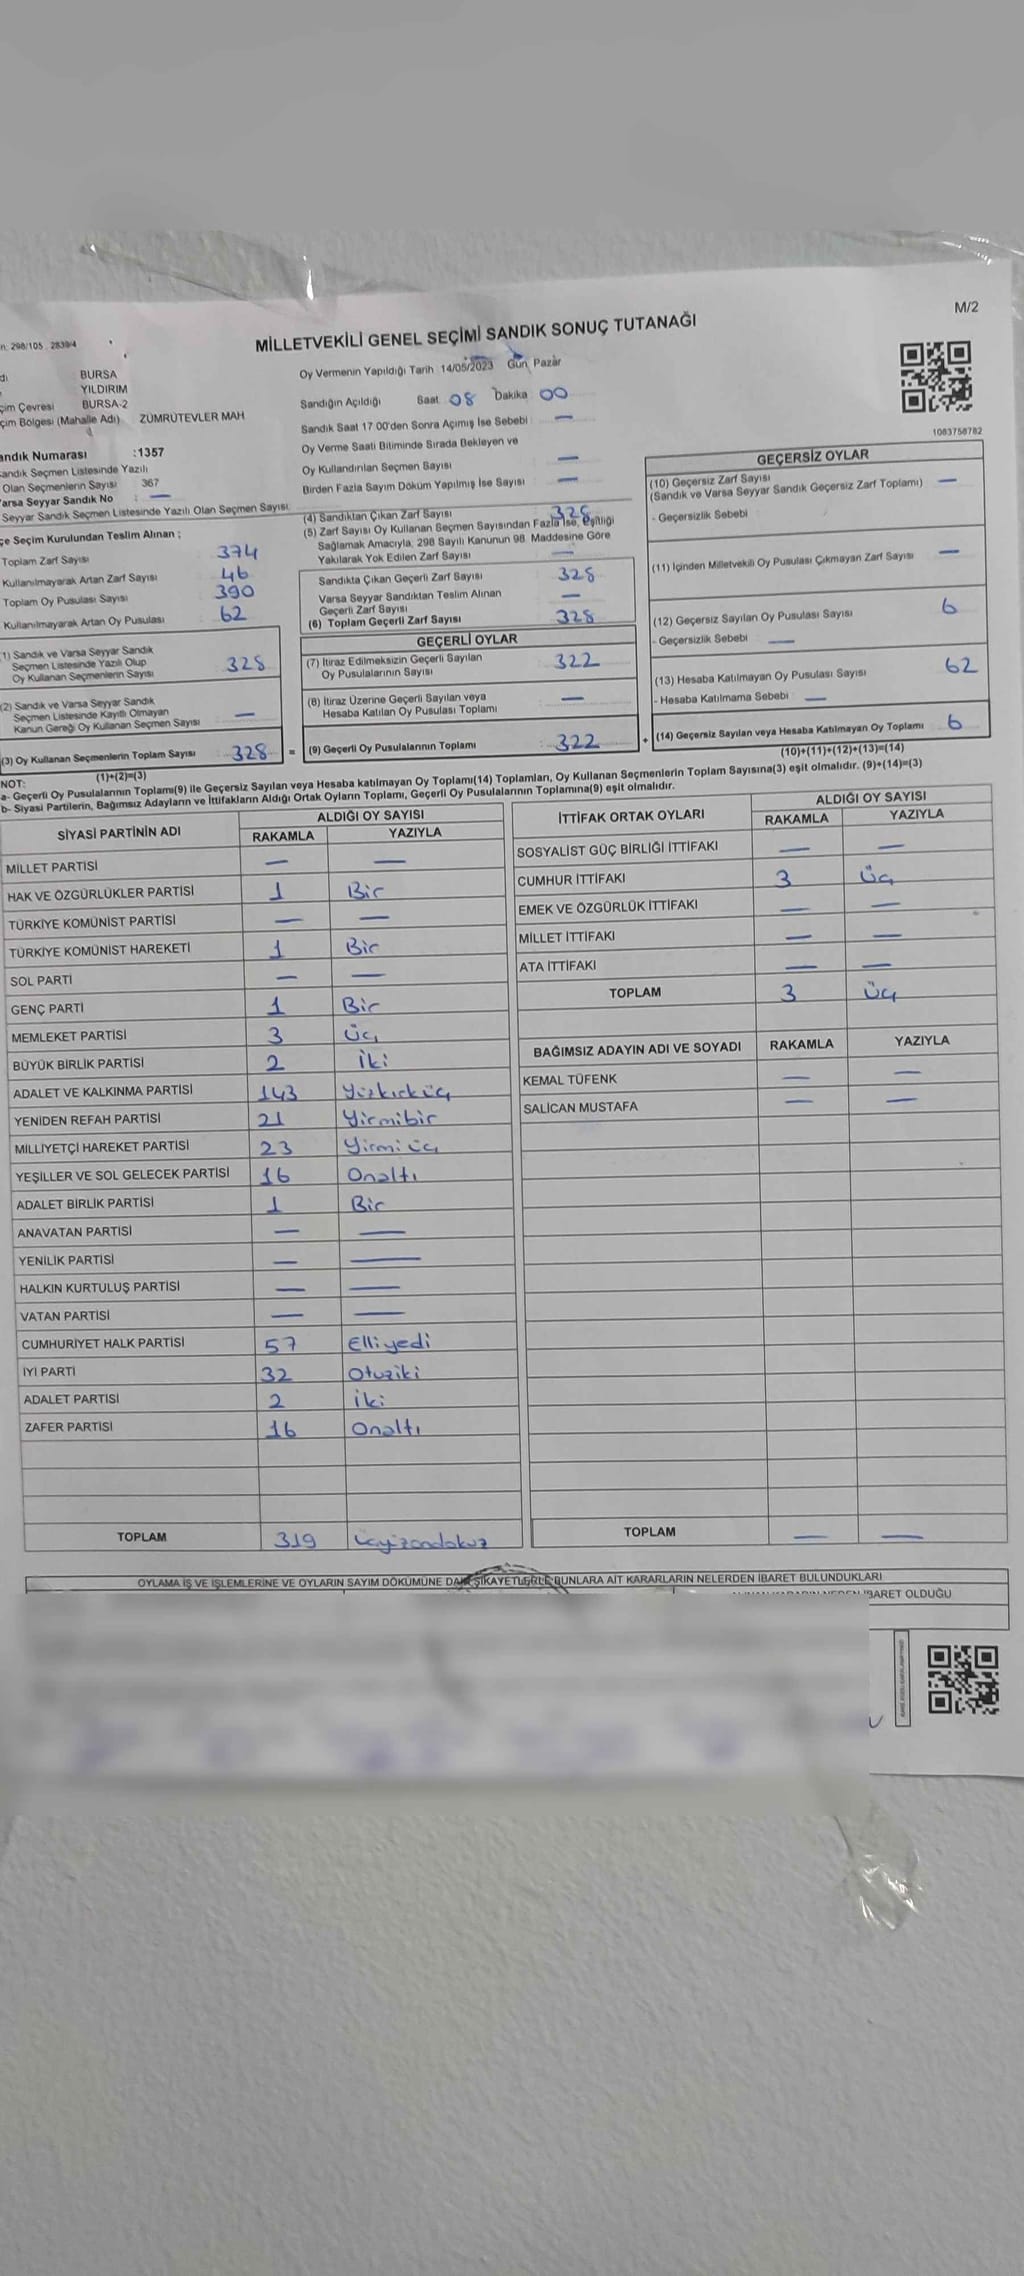 M/2
MİLLETVEKİLİ GENEL SEÇİMİ SANDIK SONUÇ TUTANAĞI
298/105 2839/4
BURSA
YILDIRIM
BURSA-2
(Mahalle Adı) ZÜMRÜTEVLER MAH
Oy Vermenin Yapıldığı Tarih 14/05/2023 Gün Pazar
Sandığın Açıldığı Saat 08 Dakika 00
Sandık Saat 17.00'den Sonra Açımış İse Sebebi —
Oy Verme Saati Bitiminde Sırada Bekleyen ve
Oy Kullandırılan Seçmen Sayısı —
Birden Fazla Sayım Döküm Yapılmış İse Sayısı —
1083758782
Numarası :1357
Seçmen Listesinde Yazılı
Olan Seçmenlerin Sayısı 367
Varsa Seyyar Sandık No : —
Seyyar Sandık Seçmen Listesinde Yazılı Olan Seçmen Sayısı:
Seçim Kurulundan Teslim Alınan ;
Toplam Zarf Sayısı 374
Kullanılmayarak Artan Zarf Sayısı 46
Toplam Oy Pusulası Sayısı 390
Kullanılmayarak Artan Oy Pusulası 62
(1) Sandık ve Varsa Seyyar Sandık
Seçmen Listesinde Yazılı Olup
Oy Kullanan Seçmenlerin Sayısı 328
(2) Sandık ve Varsa Seyyar Sandık
Seçmen Listesinde Kayıtlı Olmayan
Kanun Gereği Oy Kullanan Seçmen Sayısı —
(3) Oy Kullanan Seçmenlerin Toplam Sayısı 328 =
(1)+(2)=(3)
(4) Sandıktan Çıkan Zarf Sayısı 328
(5) Zarf Sayısı Oy Kullanan Seçmen Sayısından Fazla İse, Eşitliği
Sağlamak Amacıyla, 298 Sayılı Kanunun 98. Maddesine Göre
Yakılarak Yok Edilen Zarf Sayısı —
Sandıkta Çıkan Geçerli Zarf Sayısı 328
Varsa Seyyar Sandıktan Teslim Alınan
Geçerli Zarf Sayısı —
(6) Toplam Geçerli Zarf Sayısı 328
GEÇERLİ OYLAR
(7) İtiraz Edilmeksizin Geçerli Sayılan
Oy Pusulalarının Sayısı 322
(8) İtiraz Üzerine Geçerli Sayılan veya
Hesaba Katılan Oy Pusulası Toplamı —
(9) Geçerli Oy Pusulalarının Toplamı : 322 +
GEÇERSİZ OYLAR
(10) Geçersiz Zarf Sayısı —
(Sandık ve Varsa Seyyar Sandık Geçersiz Zarf Toplamı)
- Geçersizlik Sebebi
(11) İçinden Milletvekili Oy Pusulası Çıkmayan Zarf Sayısı —
(12) Geçersiz Sayılan Oy Pusulası Sayısı 6
- Geçersizlik Sebebi —
(13) Hesaba Katılmayan Oy Pusulası Sayısı 62
- Hesaba Katılmama Sebebi —
(14) Geçersiz Sayılan veya Hesaba Katılmayan Oy Toplamı 6
(10)+(11)+(12)+(13)=(14)
NOT:
a- Geçerli Oy Pusulalarının Toplamı(9) ile Geçersiz Sayılan veya Hesaba katılmayan Oy Toplamı(14) Toplamları, Oy Kullanan Seçmenlerin Toplam Sayısına(3) eşit olmalıdır. (9)+(14)=(3)
b- Siyasi Partilerin, Bağımsız Adayların ve İttifakların Aldığı Ortak Oyların Toplamı, Geçerli Oy Pusulalarının Toplamına(9) eşit olmalıdır.
SİYASİ PARTİNİN ADI ALDIĞI OY SAYISI
RAKAMLA YAZIYLA
MİLLET PARTİSİ — —
HAK VE ÖZGÜRLÜKLER PARTİSİ 1 Bir
TÜRKİYE KOMÜNİST PARTİSİ — —
TÜRKİYE KOMÜNİST HAREKETİ 1 Bir
SOL PARTİ — —
GENÇ PARTİ 1 Bir
MEMLEKET PARTİSİ 3 Üç
BÜYÜK BİRLİK PARTİSİ 2 İki
ADALET VE KALKINMA PARTİSİ 143 Yüzkırküç
YENİDEN REFAH PARTİSİ 21 Yirmibir
MİLLİYETÇİ HAREKET PARTİSİ 23 Yirmiüç
YEŞİLLER VE SOL GELECEK PARTİSİ 16 Onaltı
ADALET BİRLİK PARTİSİ 1 Bir
ANAVATAN PARTİSİ — —
YENİLİK PARTİSİ — —
HALKIN KURTULUŞ PARTİSİ — —
VATAN PARTİSİ — —
CUMHURİYET HALK PARTİSİ 57 Elliyedi
İYİ PARTİ 32 Otuziki
ADALET PARTİSİ 2 İki
ZAFER PARTİSİ 16 Onaltı
TOPLAM 319 Üçyüzondokuz
İTTİFAK ORTAK OYLARI ALDIĞI OY SAYISI
RAKAMLA YAZIYLA
SOSYALİST GÜÇ BİRLİĞİ İTTİFAKI — —
CUMHUR İTTİFAKI 3 Üç
EMEK VE ÖZGÜRLÜK İTTİFAKI — —
MİLLET İTTİFAKI — —
ATA İTTİFAKI — —
TOPLAM 3 Üç
BAĞIMSIZ ADAYIN ADI VE SOYADI RAKAMLA YAZIYLA
KEMAL TÜFENK — —
SALİCAN MUSTAFA — —
TOPLAM — —
OYLAMA İŞ VE İŞLEMLERİNE VE OYLARIN SAYIM DÖKÜMÜNE DAİR ŞİKAYETLERLE BUNLARA AİT KARARLARIN NELERDEN İBARET BULUNDUKLARI
İBARET OLDUĞU